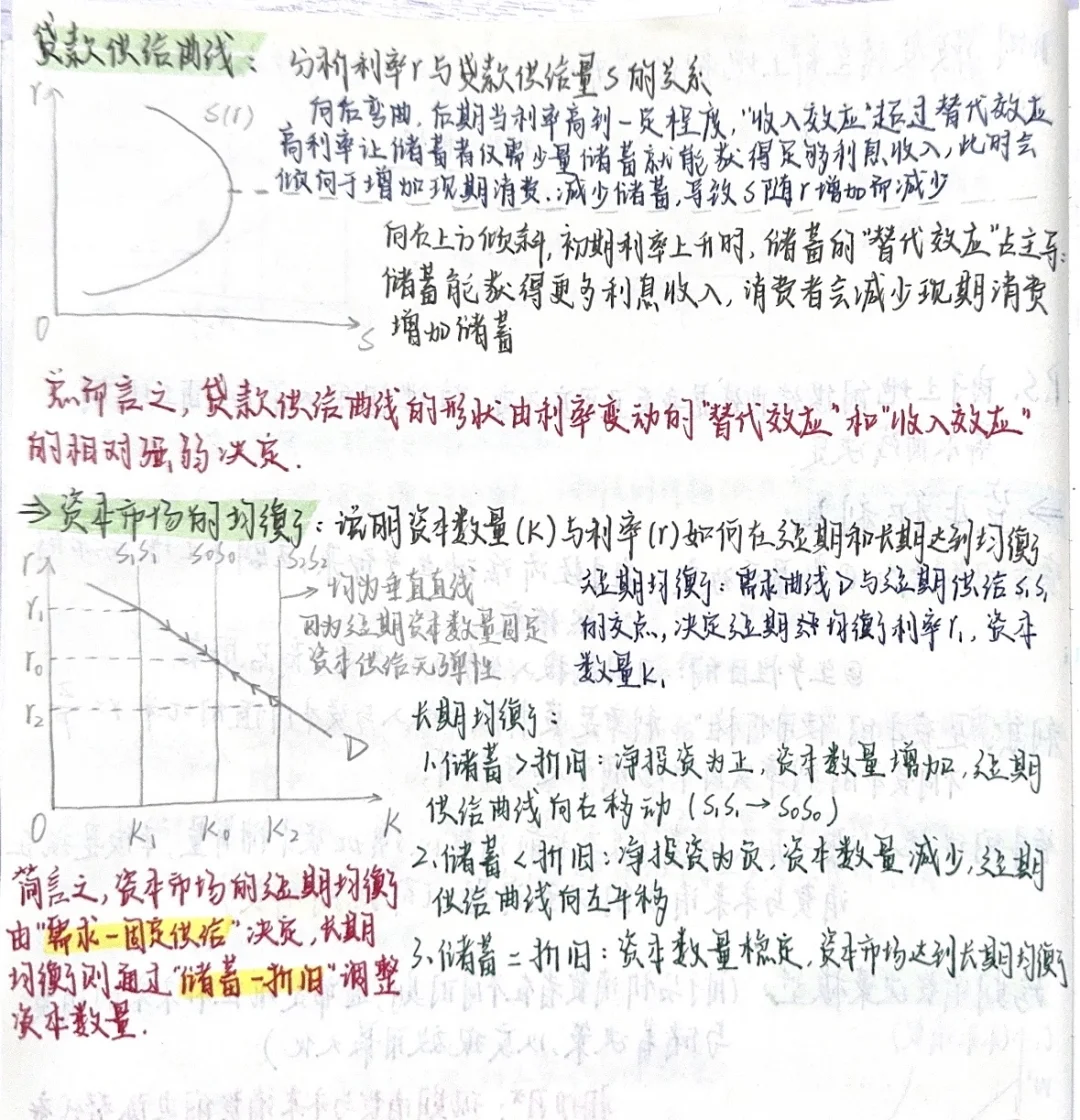 贷款供给曲线：分析利率r与贷款供给量S的关系
r
S(r)
向后弯曲，后期当利率高到一定程度，"收入效应"超过替代效应
高利率让储蓄者仅需少量储蓄就能获得足够利息收入，此时会
倾向于增加现期消费.减少储蓄，导致S随r增加而减少
向右上方倾斜，初期利率上升时，储蓄的"替代效应"占主导：
储蓄能获得更多利息收入，消费者会减少现期消费
增加储蓄
O
S
总而言之，贷款供给曲线的形状由利率变动的"替代效应"和"收入效应"
的相对强弱决定.
⇒资本市场的均衡：说明资本数量(K)与利率(r)如何在短期和长期达到均衡
r
S₁S₁ S₀S₀ S₂S₂
→均为垂直直线
因为短期资本数量固定
资本供给无弹性
r₁
r₀
r₂
D
O K₁ K₀ K₂ K
短期均衡：需求曲线D与短期供给S₁S₁
的交点，决定短期均衡利率r₁，资本
数量K₁
长期均衡：
1.储蓄>折旧：净投资为正，资本数量增加，短期
供给曲线向右移动(S₁S₁→S₀S₀)
2.储蓄<折旧：净投资为负，资本数量减少，短期
供给曲线向左平移
3.储蓄=折旧：资本数量稳定，资本市场达到长期均衡
简言之，资本市场的短期均衡
由"需求-固定供给"决定，长期
均衡则通过"储蓄-折旧"调整
资本数量.